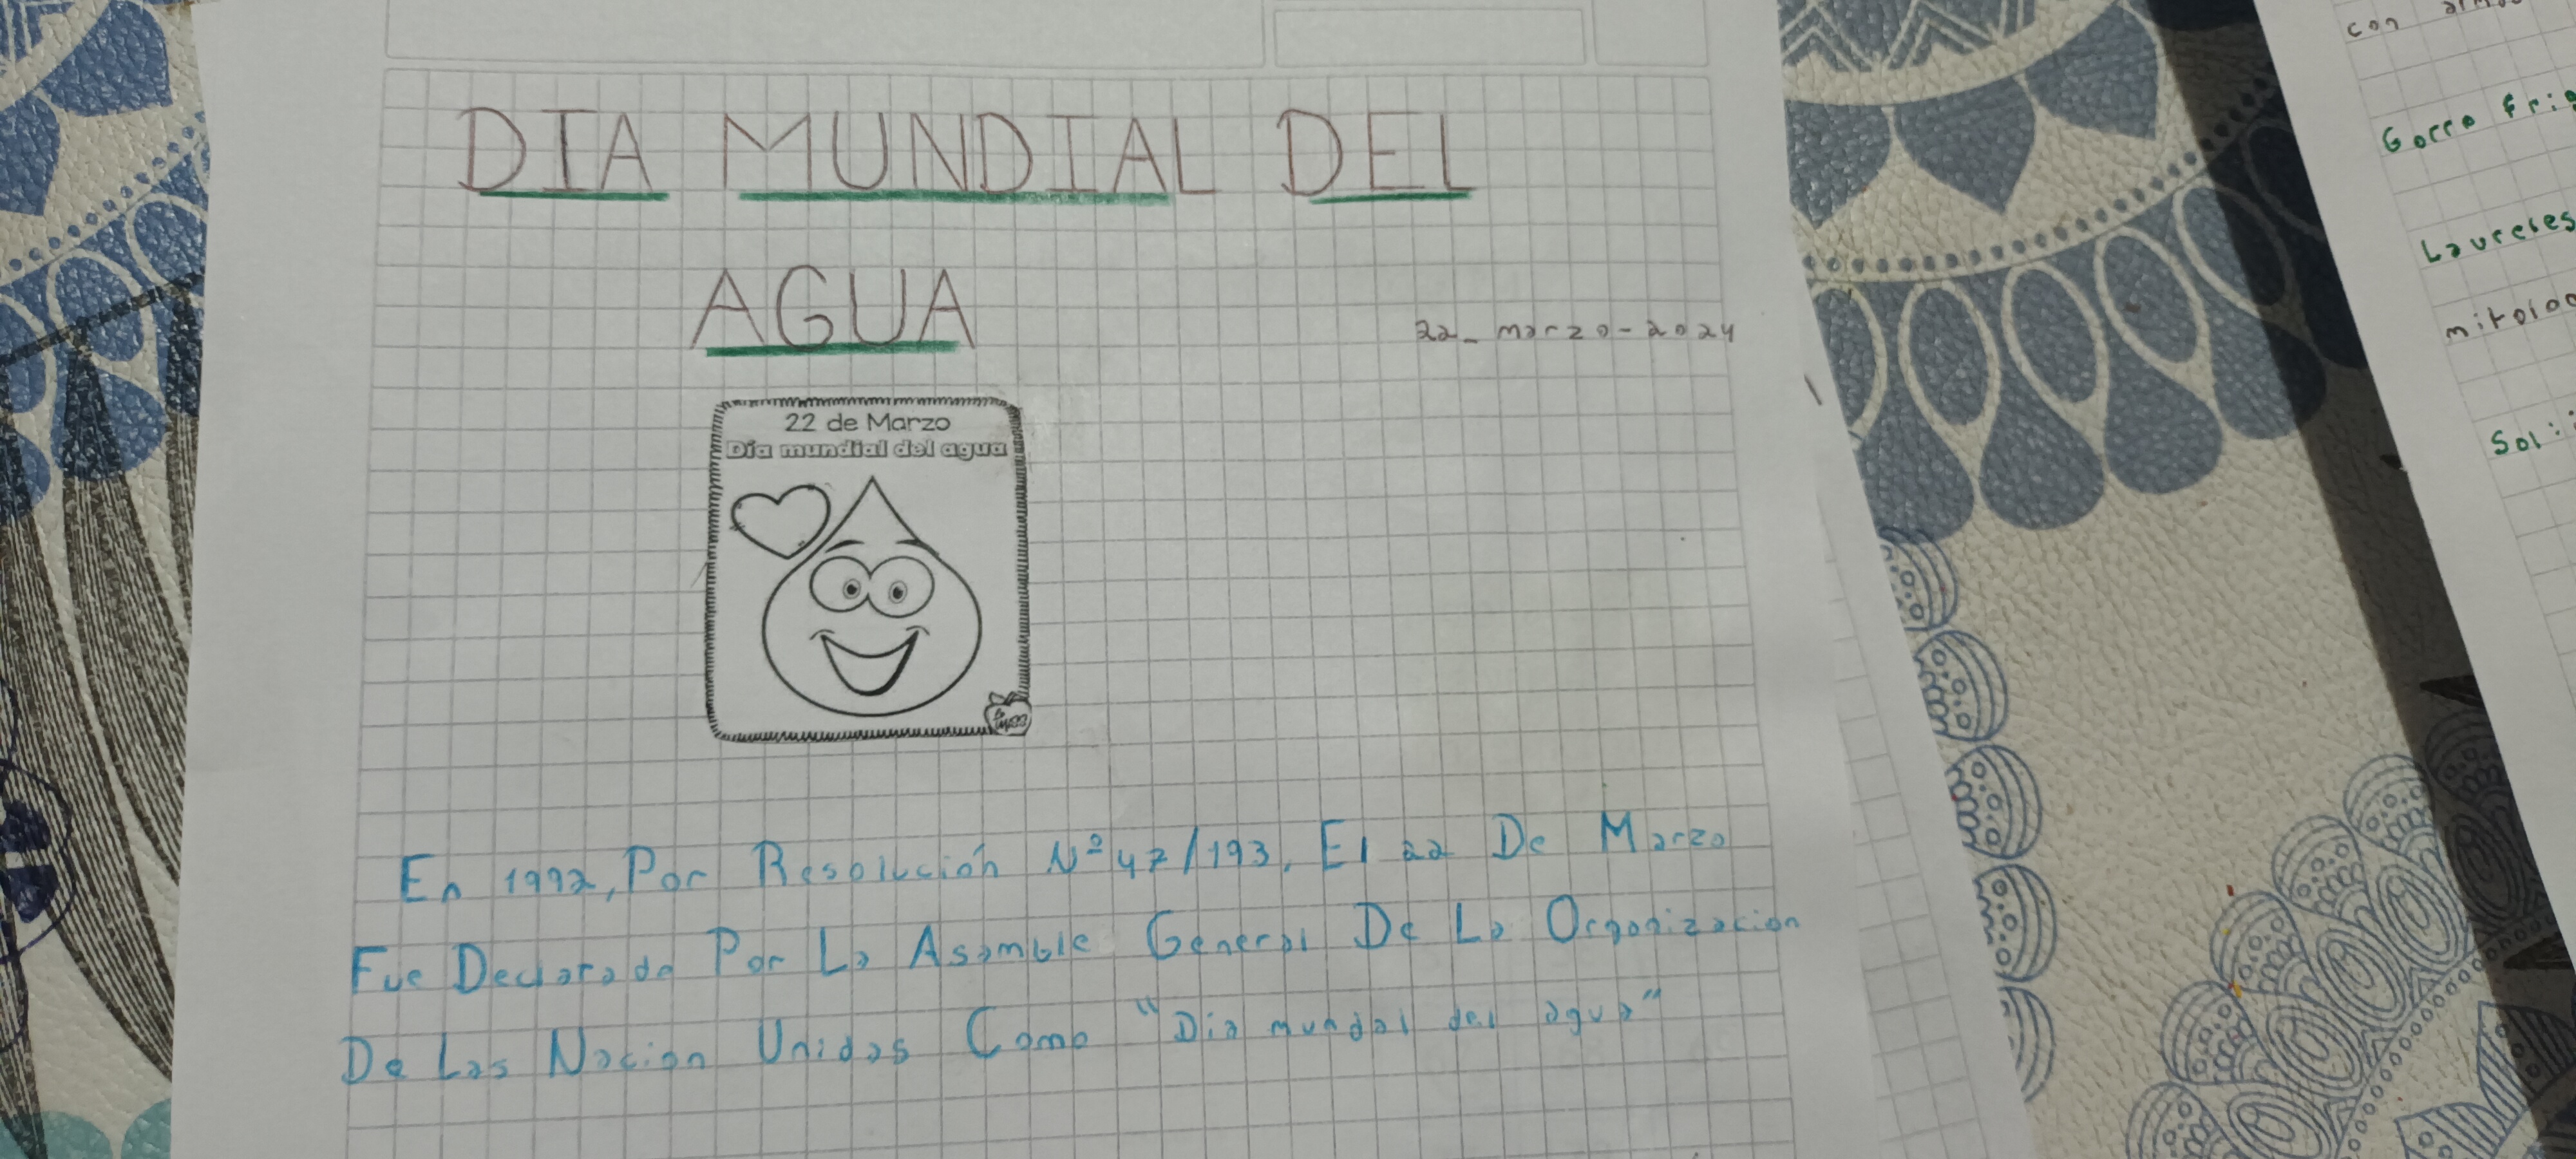 DIA MUNDIAL DEL
AGUA
22_ marzo-2024
22 de Marzo
Día mundial del agua
En 1992, Por Resolución Nº 47/193, El 22 De Marzo
Fue Declarado Por La Asamble General De La Organizacion
De Las Nacion Unidas Como "Dia mundal del agua"
con
Gorro Fri
Laureles
mitolo
Sol: